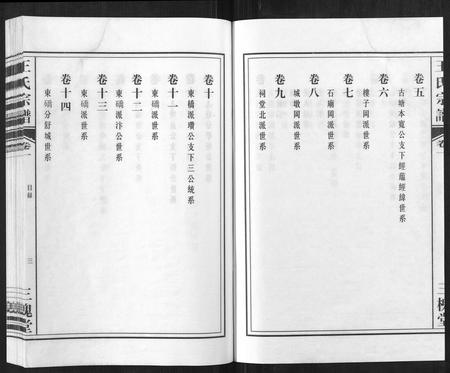 王氏宗譜
卷一
三槐堂
卷五
古塘本寬公支下經緼經緯世系
卷六
樓子岡派世系
卷七
石廟岡派世系
卷八
城墩岡派世系
卷九
祠堂北派世系
卷十
東橋派瓚公支下三公統系
卷十一
東礄派世系
卷十二
東礄派汴公世系
卷十三
東礄派世系
卷十四
東礄分舒城世系
王氏宗譜
卷一
目録
三
三槐堂